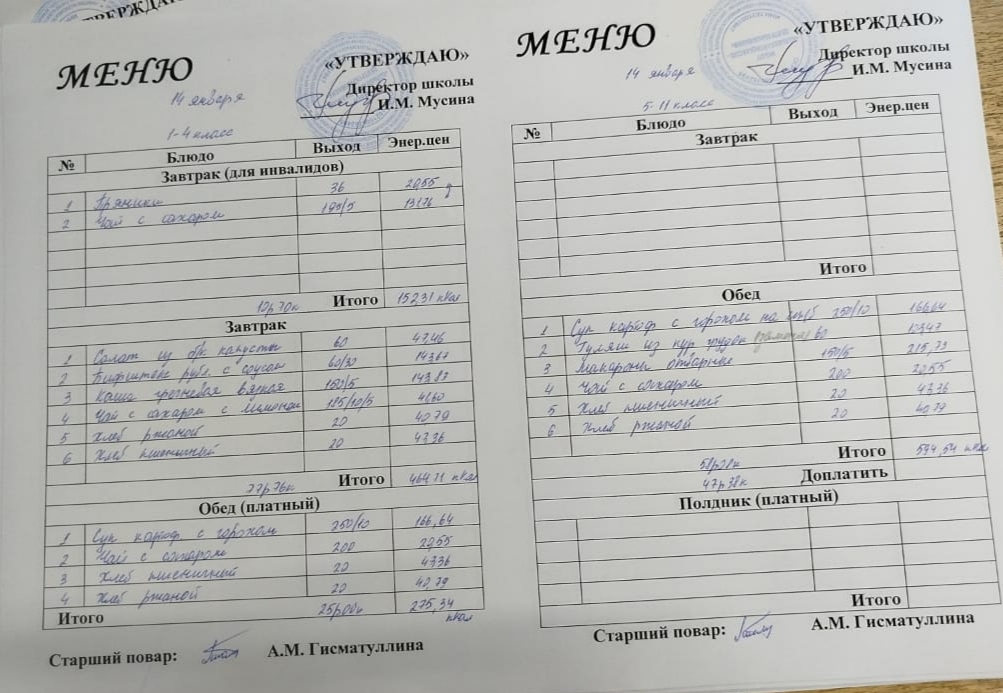 МЕНЮ
«УТВЕРЖДАЮ»
Директор школы
И.М. Мусина
14 января
1-4 класс
№ Блюдо Выход Энер.цен
Завтрак (для инвалидов)
1 Пряники 36
2 Чай с сахаром 195/5
12р70к Итого 152,31 кКал
Завтрак
1 Салат из б/к капусты 60 47,46
2 Бифштекс рубл. с соусом 60/30 143,67
3 Каша гречневая вязкая 150/5 143,83
4 Чай с сахаром с лимоном 41,60
5 Хлеб ржаной 20 40,79
6 Хлеб пшеничный 20 47,36
77р76к Итого 464,71 кКал
Обед (платный)
1 Суп картоф. с горохом 250/10 166,64
2 Чай с сахаром 200 20,55
3 Хлеб пшеничный 20 47,36
4 Хлеб ржаной 20 40,79
Итого 25р00к 275,34 кКал
Старший повар: А.М. Гисматуллина
МЕНЮ
«УТВЕРЖДАЮ»
Директор школы
И.М. Мусина
14 января
5-11 класс
№ Блюдо Выход Энер.цен
Завтрак
Итого
Обед
1 Суп картоф с горохом на 250/10 166,64
2 Гуляш из кур грудки 60
3 Макароны отварные 150/5 215,73
4 Чай с сахаром 200 20,55
5 Хлеб пшеничный 20 47,36
6 Хлеб ржаной 20 40,79
58р38к Итого 594,54 кКал
47р38к Доплатить
Полдник (платный)
Итого
Старший повар: А.М. Гисматуллина